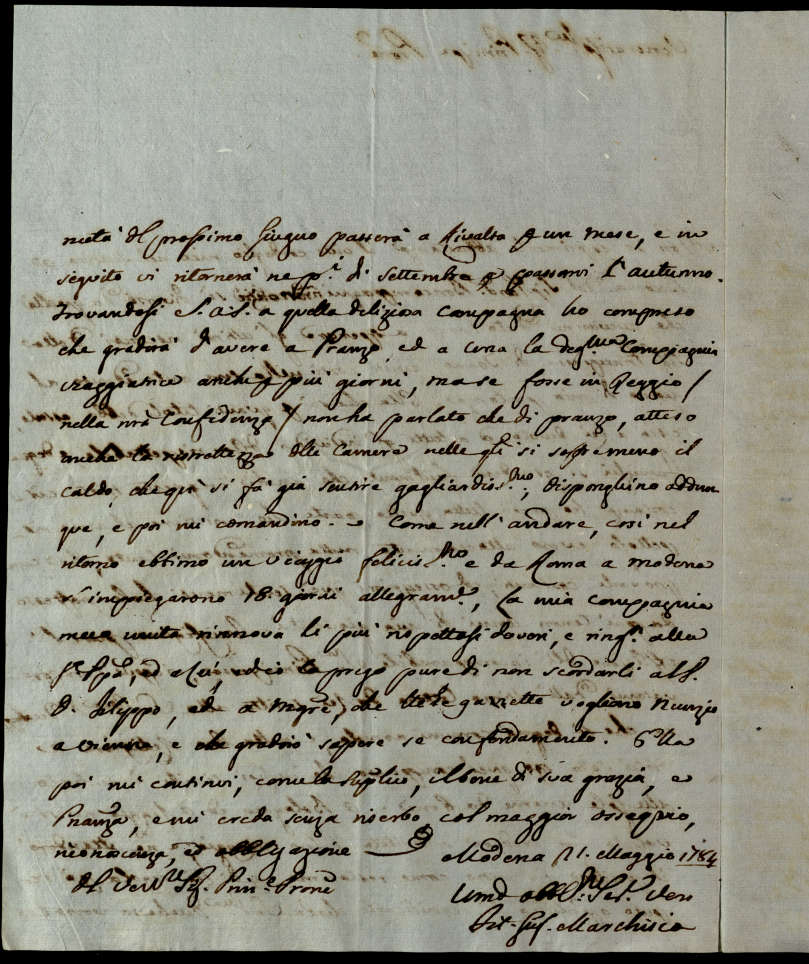 metà del prossimo Giugno passerà a Rivalta p un mese, e in
seguito vi ritornerà ne p.i di Settembre p passarvi l'autunno.
Trovandosi S. A. S. a quella deliziosa Campagna ho compreso
che gradirà d'avere a Pranzo, ed a cena la deg.ma Compagnia
viaggiatrice anche p più giorni, ma se fosse in Reggio /
nella mã Confidenza / non ha parlato che di pranzo, atteso
anche la ristrettezza delle Camere nelle qli si soffriremo il
caldo, che quì si fà già sentire gagliardiss.mo; disponghino addun
que, e poi mi comandino. Come nell'andare, così nel
ritorno ebbimo un viaggio feliciss.mo e da Roma a Modena
s'impiegarono 18. giorni allegram.e, La mia compagnia
meco unita rinnova li più rispettosi doveri, e ring.ti alla
ed a Lei, ed io la prego pure di non scordarli al S.
D. Filippo, ed a Mgre, che le gazzette vogliono Nunzio
a Vienna, e che gradirò sapere se con fondamento. Ella
poi mi continui, come la supplico, il bene di sua grazia, e
e mi creda senza riserbo, col maggior ossequio,
riconoscenza, ed obbligazione
Modena 21. Maggio 1784
Di Lei Sig. Prin.e Prone
Umo obb.mo Ser.e Vero
Marchisio